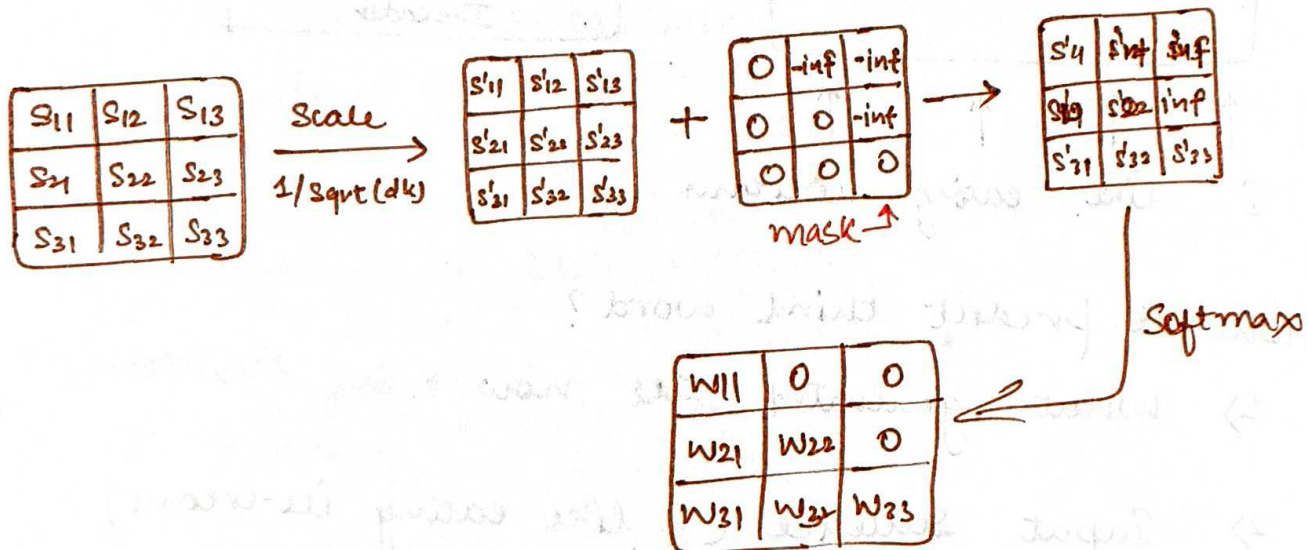 S11 S12 S13
S21 S22 S23
S31 S32 S33
Scale
1/sqrt(dk)
S'11 S'12 S'13
S'21 S'22 S'23
S'31 S'32 S'33
+
0 -inf -inf
0 0 -inf
0 0 0
mask
S'11
inf
S'22 inf
S'31 S'32 S'33
Softmax
W11 0 0
W21 W22 0
W31 W32 W33